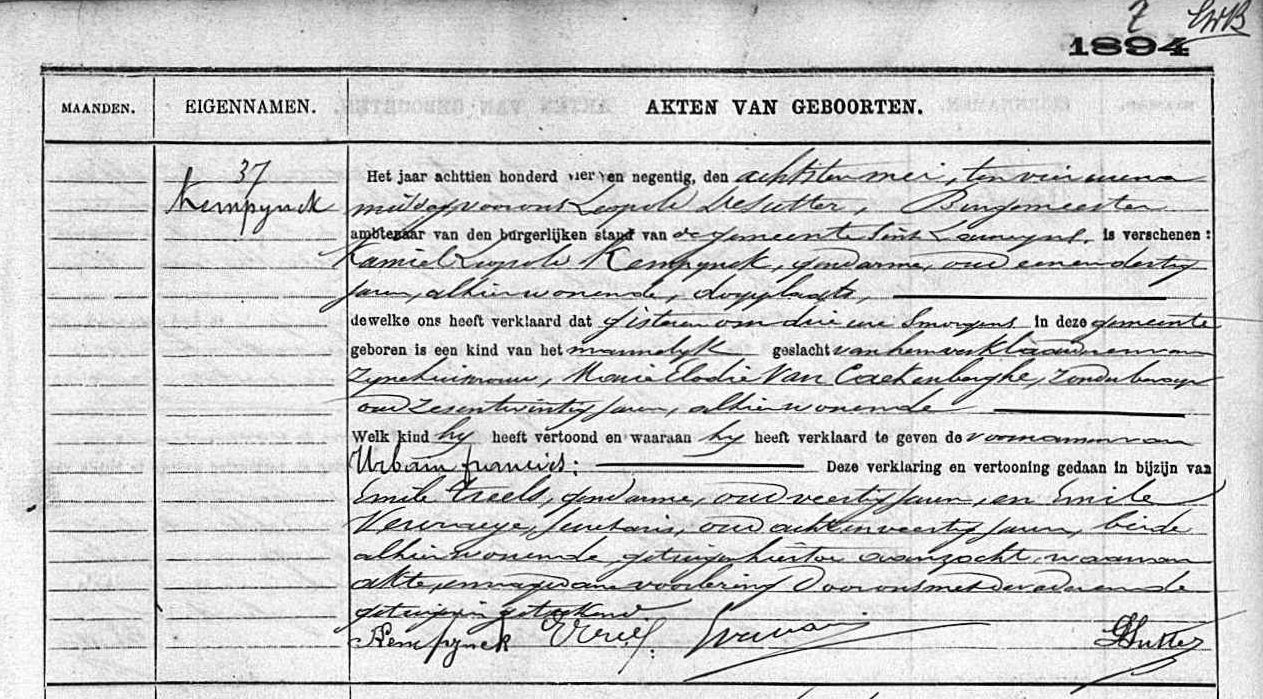 7 
1894
MAANDEN. EIGENNAMEN. AKTEN VAN GEBOORTEN.
37
Kempynck
Het jaar achttien honderd vier en negentig, den achtsten mei, ten vier uren
middag, voor ons Leopold DeSutter, Burgemeester
ambtenaar van den burgerlijken stand van de gemeente Sint Laureyns, is verschenen:
Kamiel Leopold Kempynck, gendarme, oud eenendertig
jaren, alhier wonende,
dewelke ons heeft verklaard dat gisteren om drie ure smorgens in deze gemeente
geboren is een kind van het mannelyk geslacht van hem verklaarder en van
zyne huisvrouw, Marie Elodie Van Caekenberghe, zonder beroep
oud zesentwintig jaren, alhier wonende
Welk kind hy heeft vertoond en waaraan hy heeft verklaard te geven de voornamen van
Urbain francies: Deze verklaring en vertooning gedaan in bijzijn van
Emile Treels, gendarme, oud veertig jaren, en Emile
secretaris, oud achtenveertig jaren, beide
alhier wonende, getuigen hiertoe aanzocht, waarvan
akte, en na gedane voorlezing door ons met de
getuigen geteekend
Kempynck